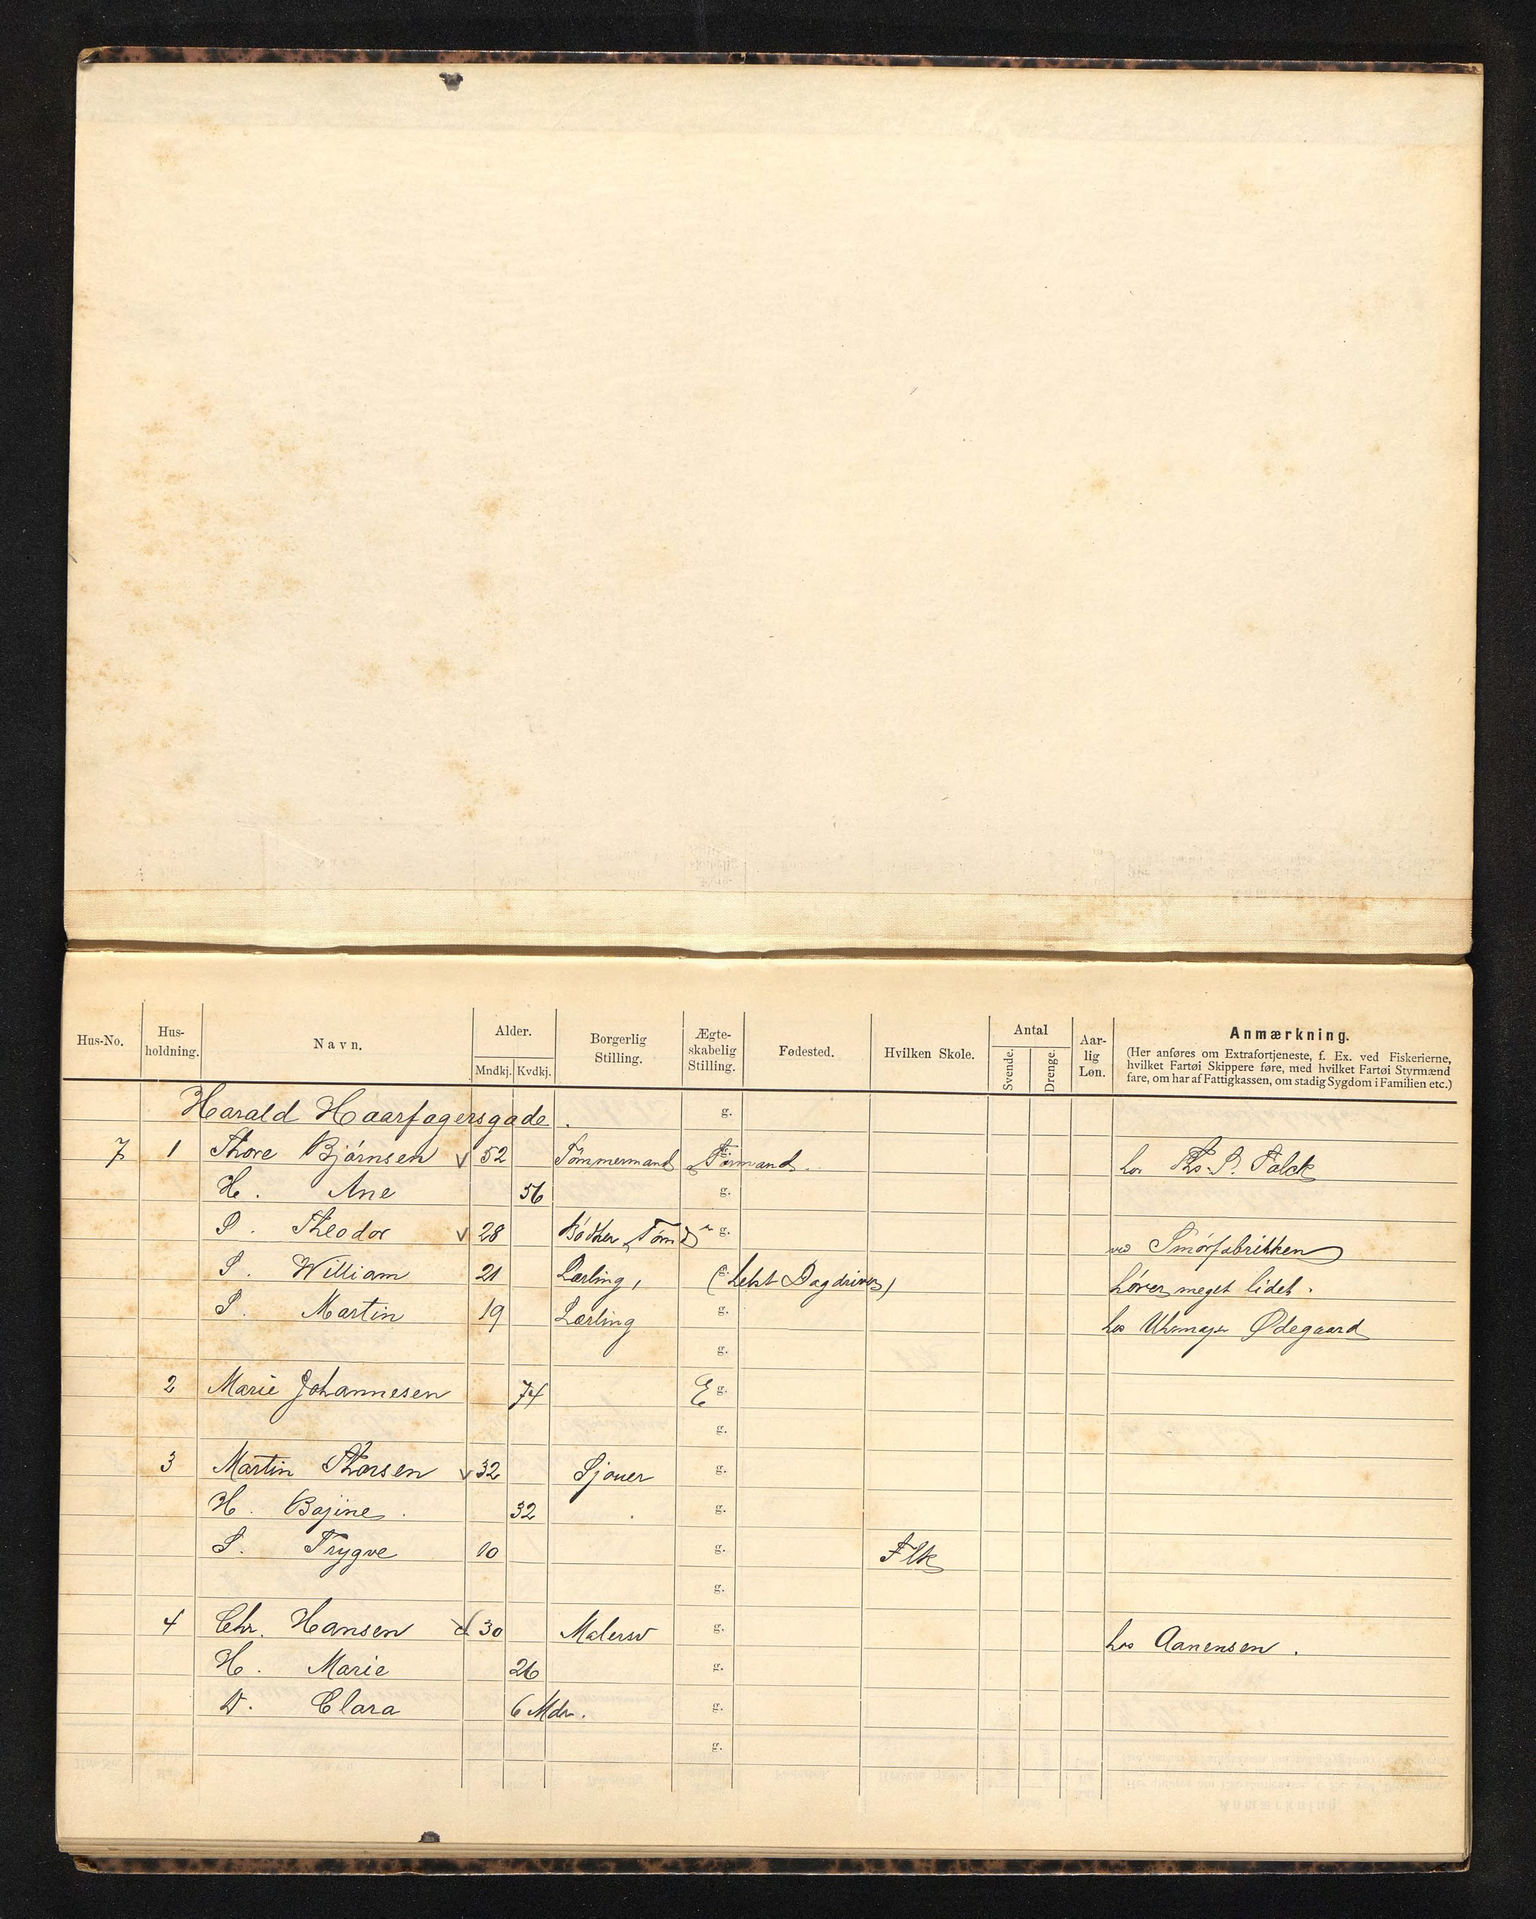 Hus-No. Hus-holdning. Navn. Alder. Mndkj. Kvdkj. Borgerlig Stilling. Ægte-skabelig Stilling. Fødested. Hvilken Skole. Antal Svende. Drenge. Aar-lig Løn. Anmærkning.
(Her anføres om Extrafortjeneste, f. Ex. ved Fiskerierne,
hvilket Fartøi Skippere føre, med hvilket Fartøi Styrmænd
fare, om har af Fattigkassen, om stadig Sygdom i Familien etc.)
Harald Haarfagersgade. g.
7 1 Thore Bjørnsen v 52 Tømmermand, Formand. g. hos Ths. S. Falck
H. Ane 56 g.
S. Theodor v 28 Bødker, g. ved Smørfabrikken
S. William 21 Lærling, (helst Dagdriver) g. hører meget lidet.
S. Martin 19 Lærling g. hos Uhrmager Ødegaard
g.
2 Marie Johannesen 74 E g.
g.
3 Martin Thorsen v 32 Sjouer g.
H. Bojine. 32 g.
S. Trygve 10 g. Flk
g.
4 Chr. Hansen 30 Malersv g. hos Aanensen.
H. Marie 26 g.
D. Clara 6 Mdr. g.
g.